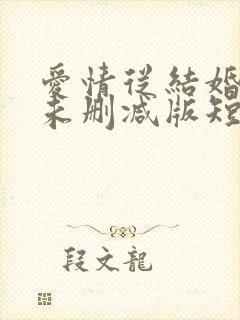 愛情從結婚
未刪減版短
段文龍